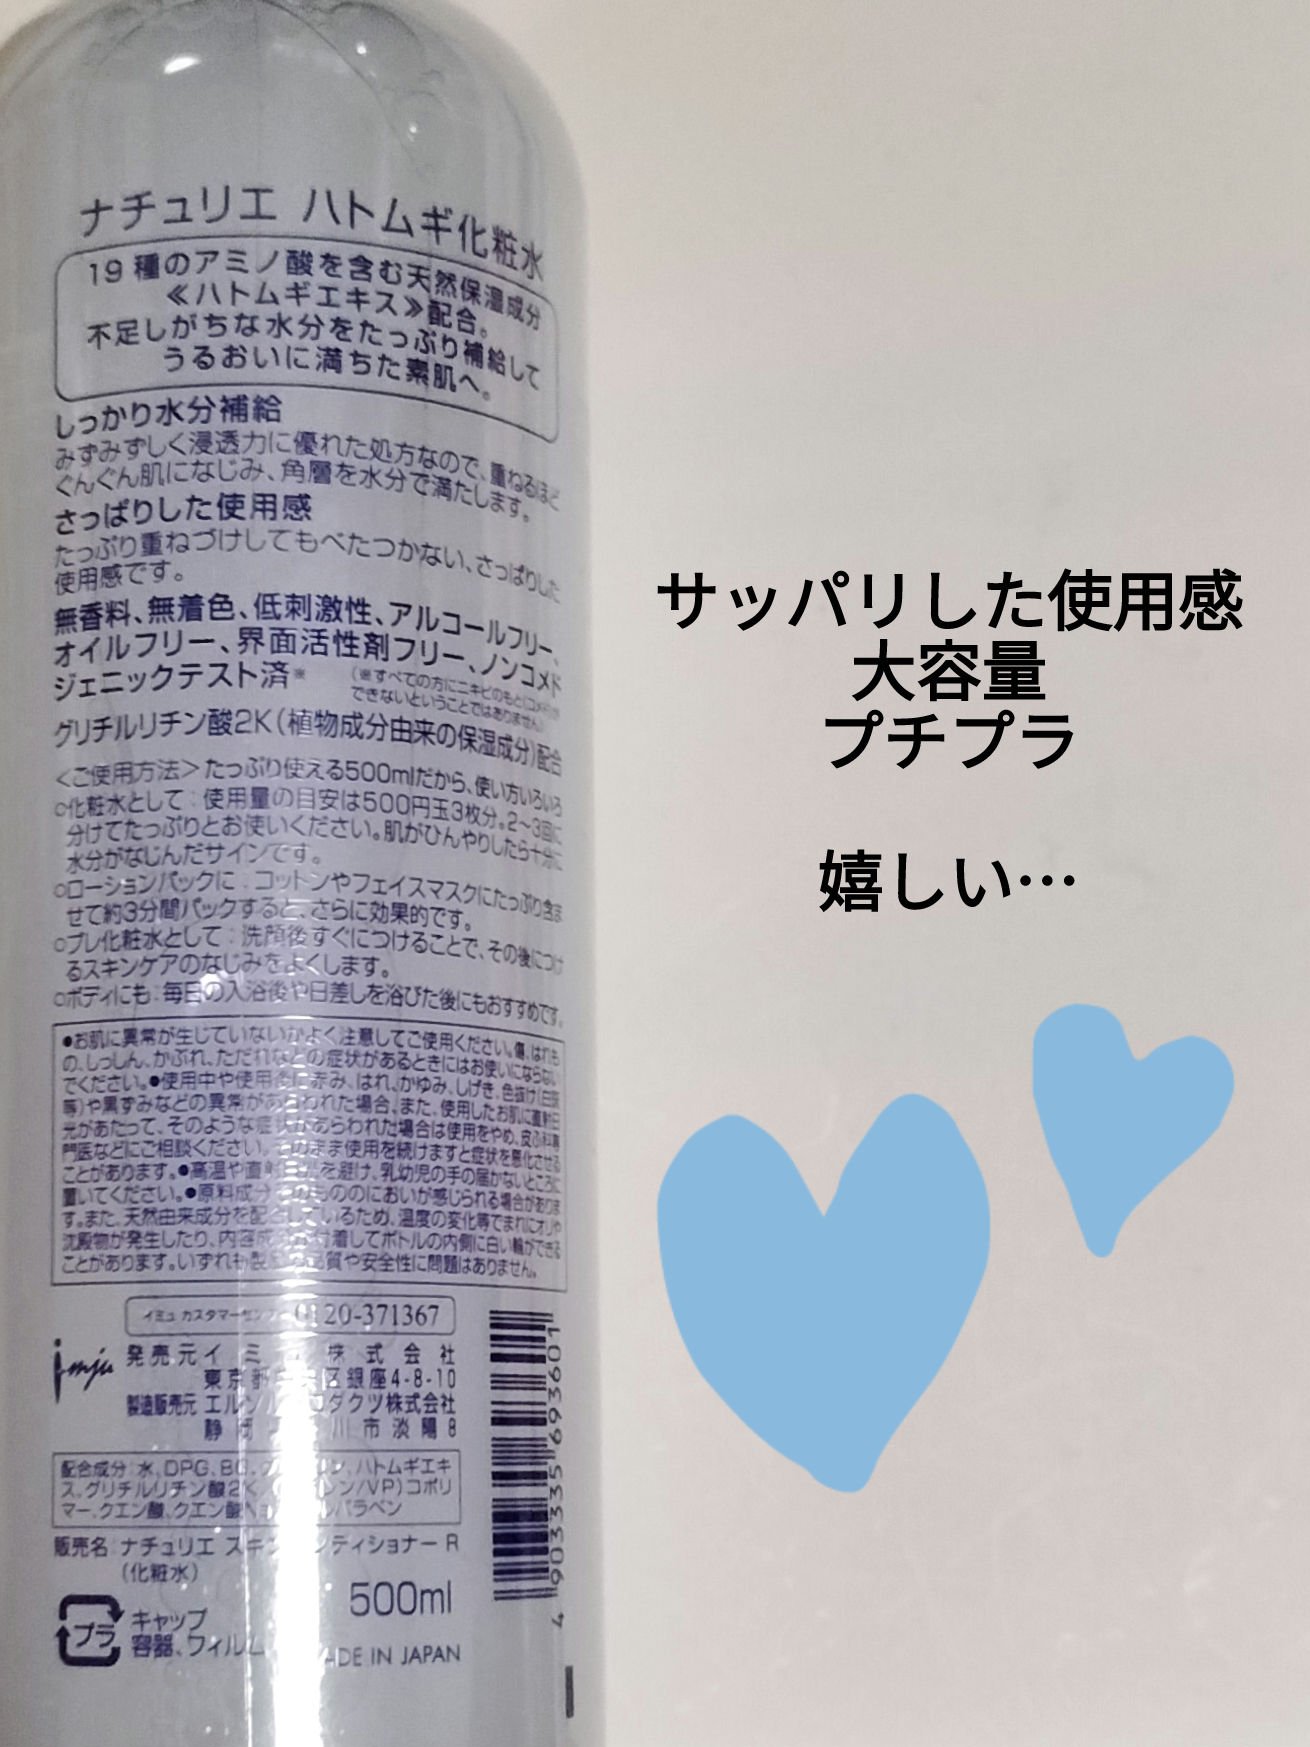 ナチュリエ ハトムギ化粧水
19種のアミノ酸を含む天然保湿成分
≪ハトムギエキス≫配合。
不足しがちな水分をたっぷり補給して
うるおいに満ちた素肌へ。
しっかり水分補給
みずみずしく浸透力に優れた処方なので、重ねるほど
ぐんぐん肌になじみ、角層を水分で満たします。
さっぱりした使用感
たっぷり重ねづけしてもべたつかない、さっぱりした
使用感です。
無香料、無着色、低刺激性、アルコールフリー、
オイルフリー、界面活性剤フリー、ノンコメド
ジェニックテスト済※
(※すべての方にニキビのもと(コメド)が
できないということではありません)
グリチルリチン酸2K(植物成分由来の保湿成分)配合
<ご使用方法>たっぷり使える500mlだから、使い方いろいろ
○化粧水として:使用量の目安は500円玉3枚分。2〜3回に
分けてたっぷりとお使いください。肌がひんやりしたら十分に
水分がなじんだサインです。
○ローションパックに:コットンやフェイスマスクにたっぷり含ま
せて約3分間パックすると、さらに効果的です。
○プレ化粧水として:洗顔後すぐにつけることで、その後につけ
るスキンケアのなじみをよくします。
○ボディにも:毎日の入浴後や日差しを浴びた後にもおすすめです。
●お肌に異常が生じていないかよく注意してご使用ください。傷、はれも
の、しっしん、かぶれ、ただれなどの症状があるときにはお使いにならない
でください。●使用中や使用後に赤み、はれ、かゆみ、しげき、色抜け(白斑
等)や黒ずみなどの異常があらわれた場合、また、使用したお肌に直射日
光があたって、そのような症状があらわれた場合は使用をやめ、皮ふ科専
門医などにご相談ください。そのまま使用を続けますと症状を悪化させる
ことがあります。●高温や直射日光を避け、乳幼児の手の届かないところに
置いてください。●原料成分そのもののにおいが感じられる場合がありま
す。また、天然由来成分を配合しているため、温度の変化等でまれにオリや
沈殿物が発生したり、内容成分が付着してボトルの内側に白い輪ができる
ことがあります。いずれも製品の品質や安全性に問題はありません。
イミュ カスタマーセンター 0120-371367
imju 発売元 イミュ株式会社
東京都 区銀座4-8-10
製造販売元 エル プロダクツ株式会社
静岡 川市淡陽8
配合成分:水、DPG、BG、グリセリン、ハトムギエキ
ス、グリチルリチン酸2K、 レン/VP)コポリ
マー、クエン酸、クエン酸 パラベン
販売名:ナチュリエ スキンコンディショナー R
(化粧水)
500ml
プラ
キャップ
容器、フィルム
MADE IN JAPAN
4903335693601
サッパリした使用感
大容量
プチプラ
嬉しい…